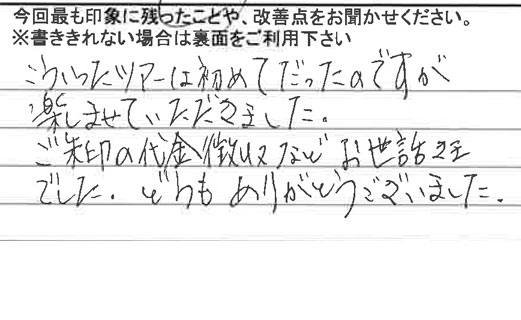 今回最も印象に残ったことや、改善点をお聞かせください。
※書ききれない場合は裏面をご利用下さい
こういったツアーは初めてだったのですが
楽しませていただきました。
ご朱印の代金徴収などお世話さま
でした。どうもありがとうございました。